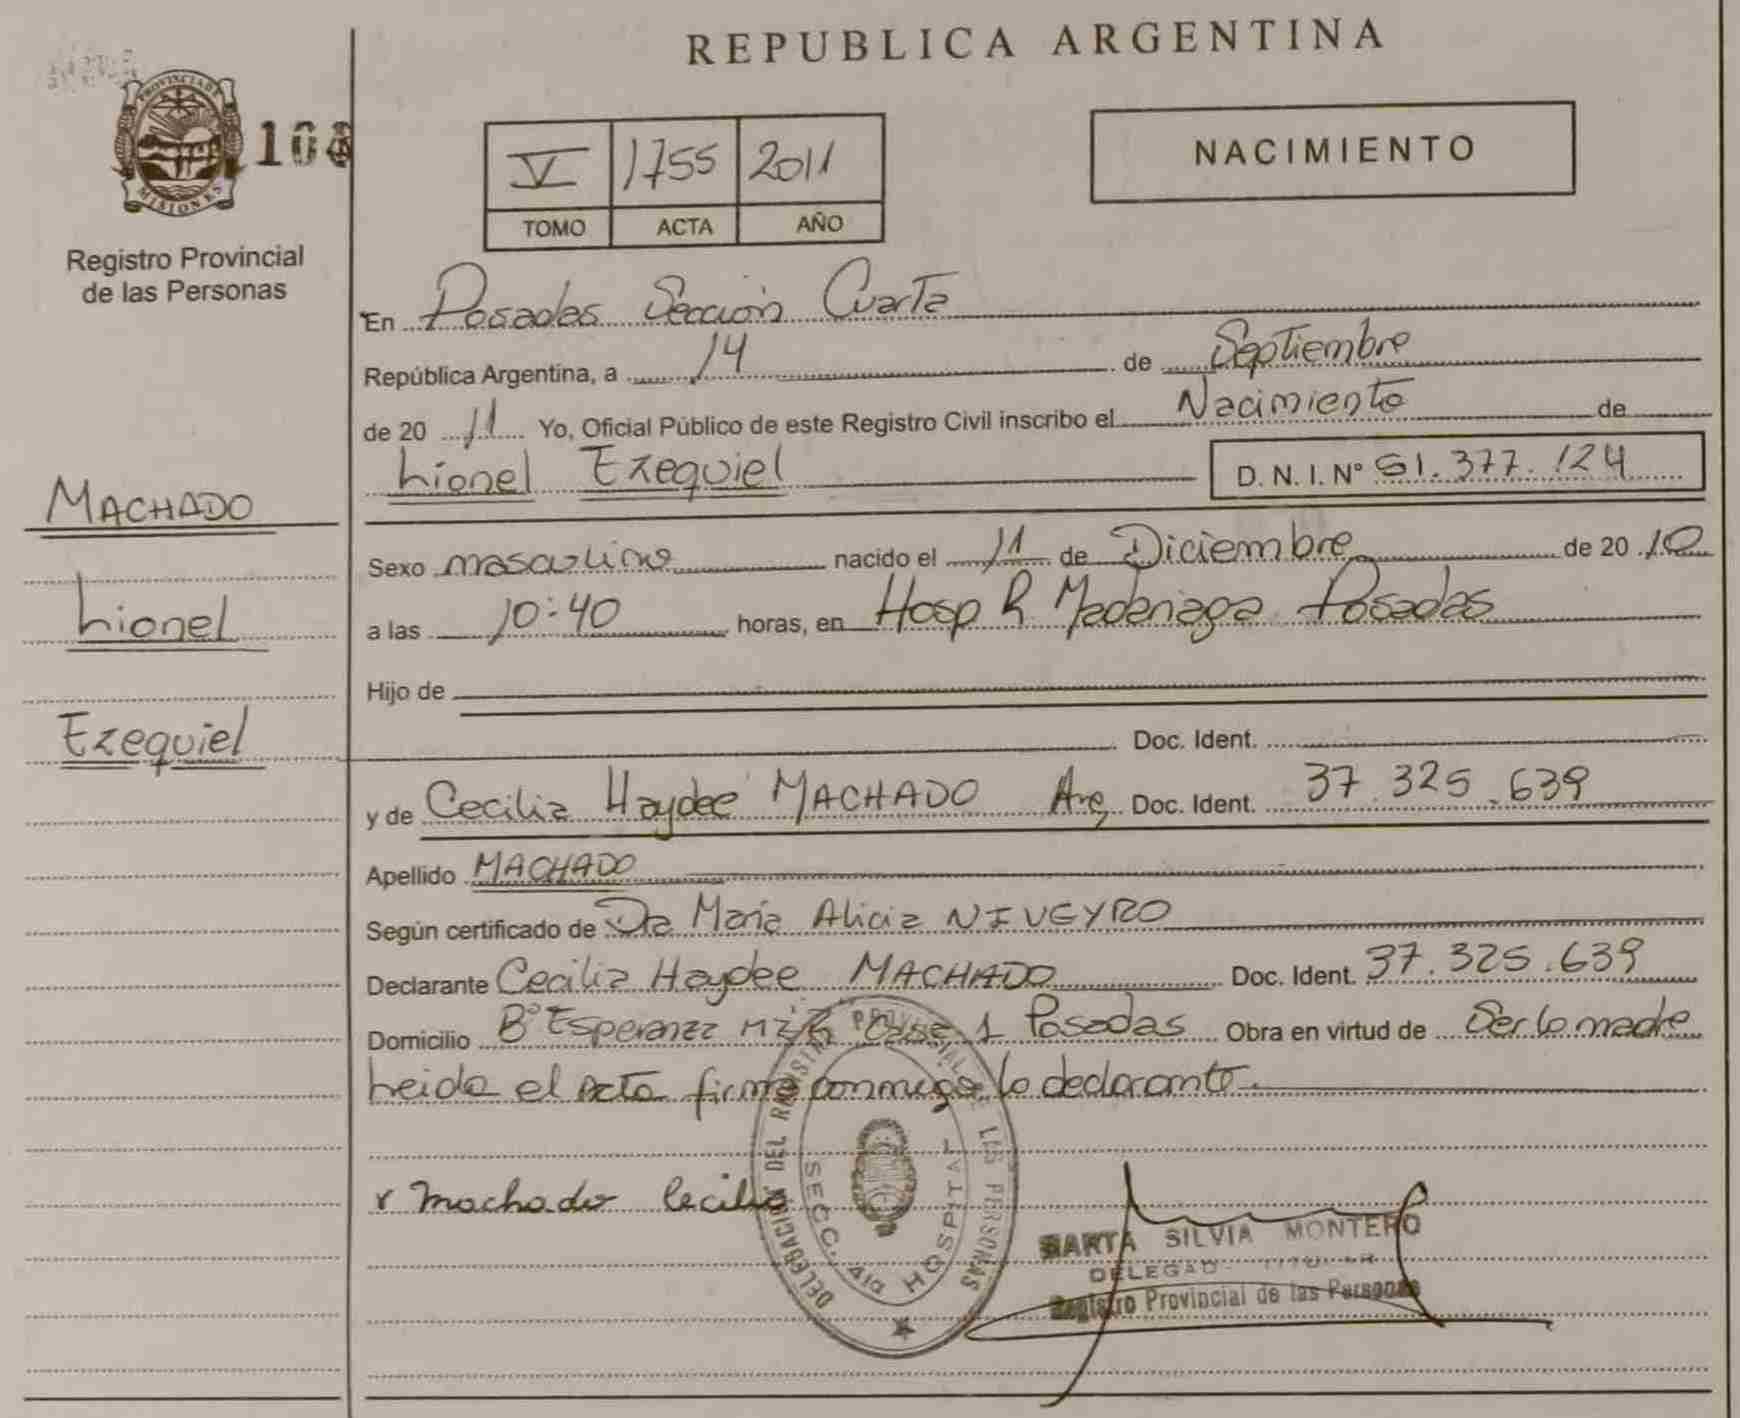 REPUBLICA ARGENTINA
PROVINCIA DE
MISIONES
Registro Provincial
de las Personas
V 1755 2011
TOMO ACTA AÑO
NACIMIENTO
En Posadas Sección Cuarta
República Argentina, a 14 de Septiembre
de 20 11 Yo, Oficial Público de este Registro Civil inscribo el Nacimiento de
Lionel Ezequiel D. N. I. Nº 51.377.124
MACHADO
Lionel
Ezequiel
Sexo masculino nacido el 11 de Diciembre de 20 10
a las 10:40 horas, en Hosp R Madariaga Posadas
Hijo de
Doc. Ident.
y de Cecilia Haydee MACHADO Arg Doc. Ident. 37.325.639
Apellido MACHADO
Según certificado de Dra María Alicia NIVEYRO
Declarante Cecilia Haydee MACHADO Doc. Ident. 37.325.639
Domicilio Bº Esperanza Mz Casa 1 Posadas Obra en virtud de Ser la madre
Leida el acta firma conmigo la declarante.
x Machado Cecilia
DELEGACION DEL REGISTRO PROVINCIAL DE LAS PERSONAS
SECC. 4ta HOSPITAL
MARTA SILVIA MONTERO
DELEGADO TITULAR
Registro Provincial de las Personas